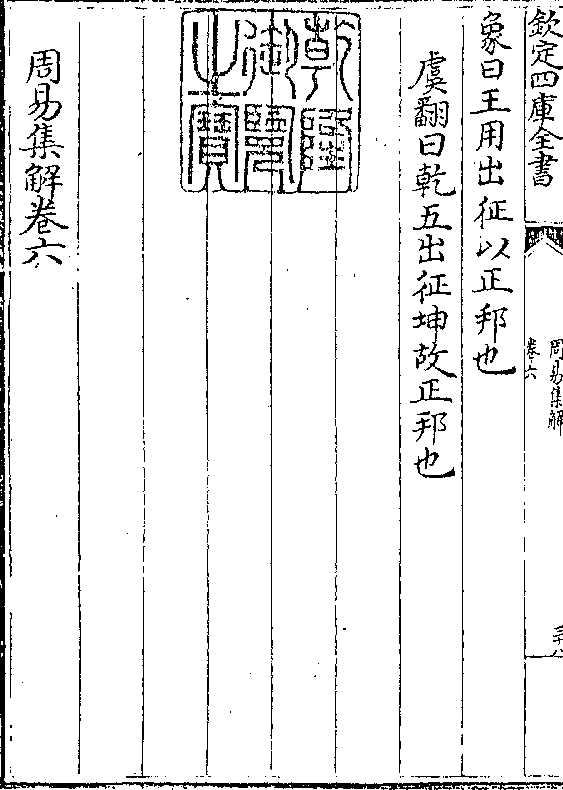 欽定四庫全書
周易集解
卷六
象曰王用出征以正邦也
虞翻曰乾五出征坤故正邦也
乾隆
御覽
之寶
周易集解卷六